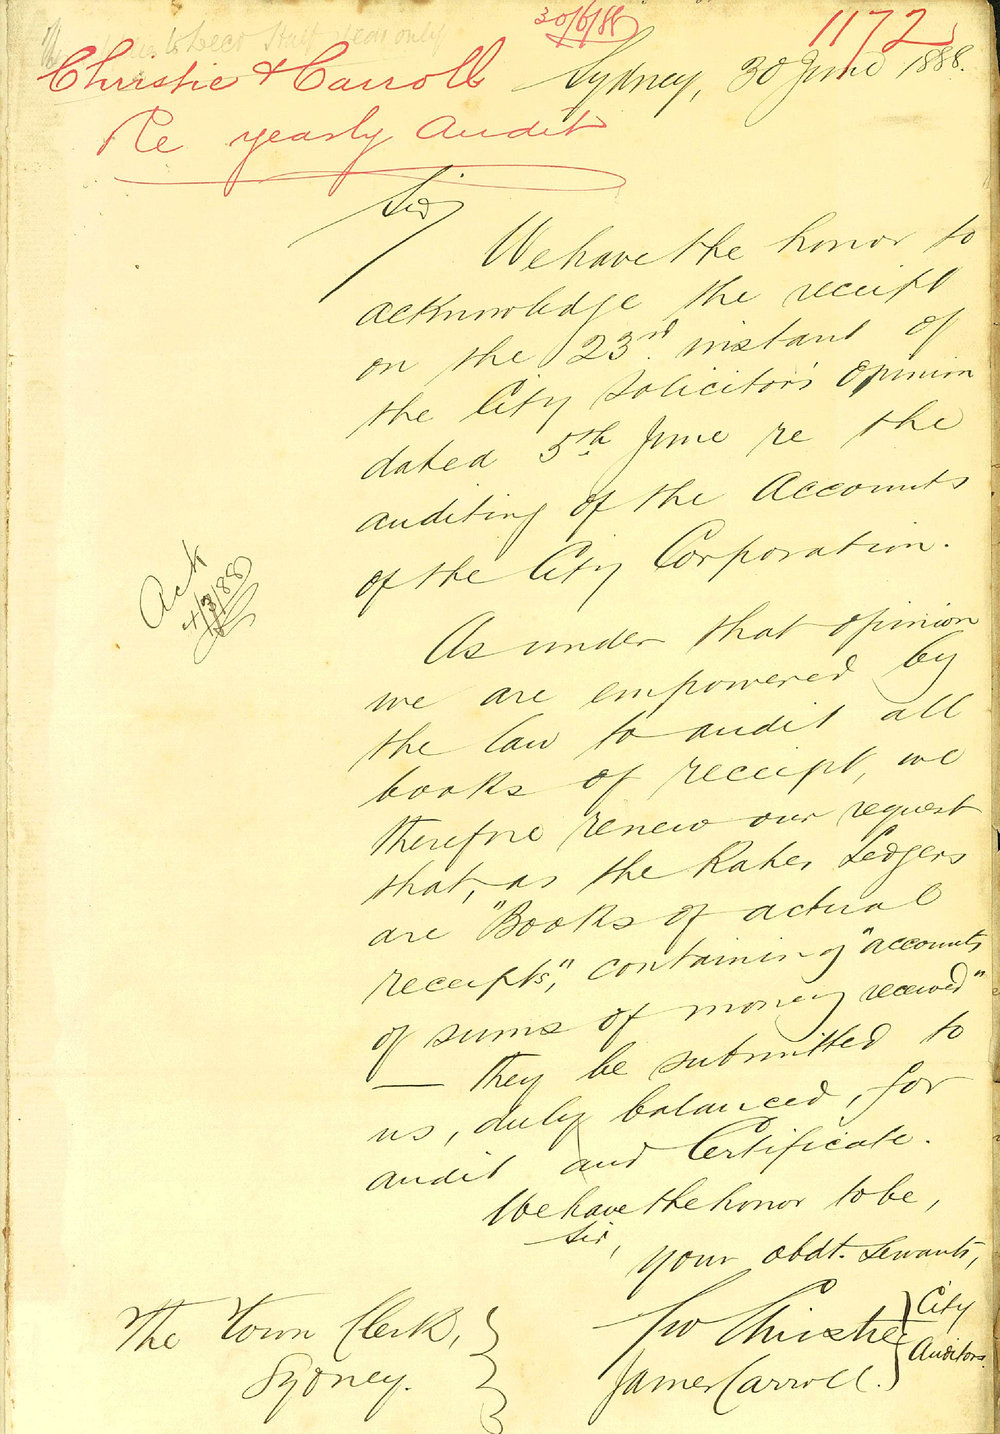 30/6/88
1172
Christie & Carroll
Re yearly Audit
Sydney, 30 June 1888.
Sir
We have the honor to
acknowledge the receipt
on the 23rd. instant of
the City Solicitor's Opinion
dated 5th June re the
auditing of the Accounts
of the City Corporation.
Ack
As under that opinion
we are empowered by
the law to audit all
books of receipt, we
therefore renew our request
that, as the Rates Ledgers
are "Books of actual
receipts", containing "accounts
of sums of money received"
— they be submitted to
us, duly balanced, for
audit and Certificate.
We have the honor to be,
Sir,
your obdt. Servants,
The Town Clerk,
Sydney.
Christie
James Carroll.
City
Auditors.